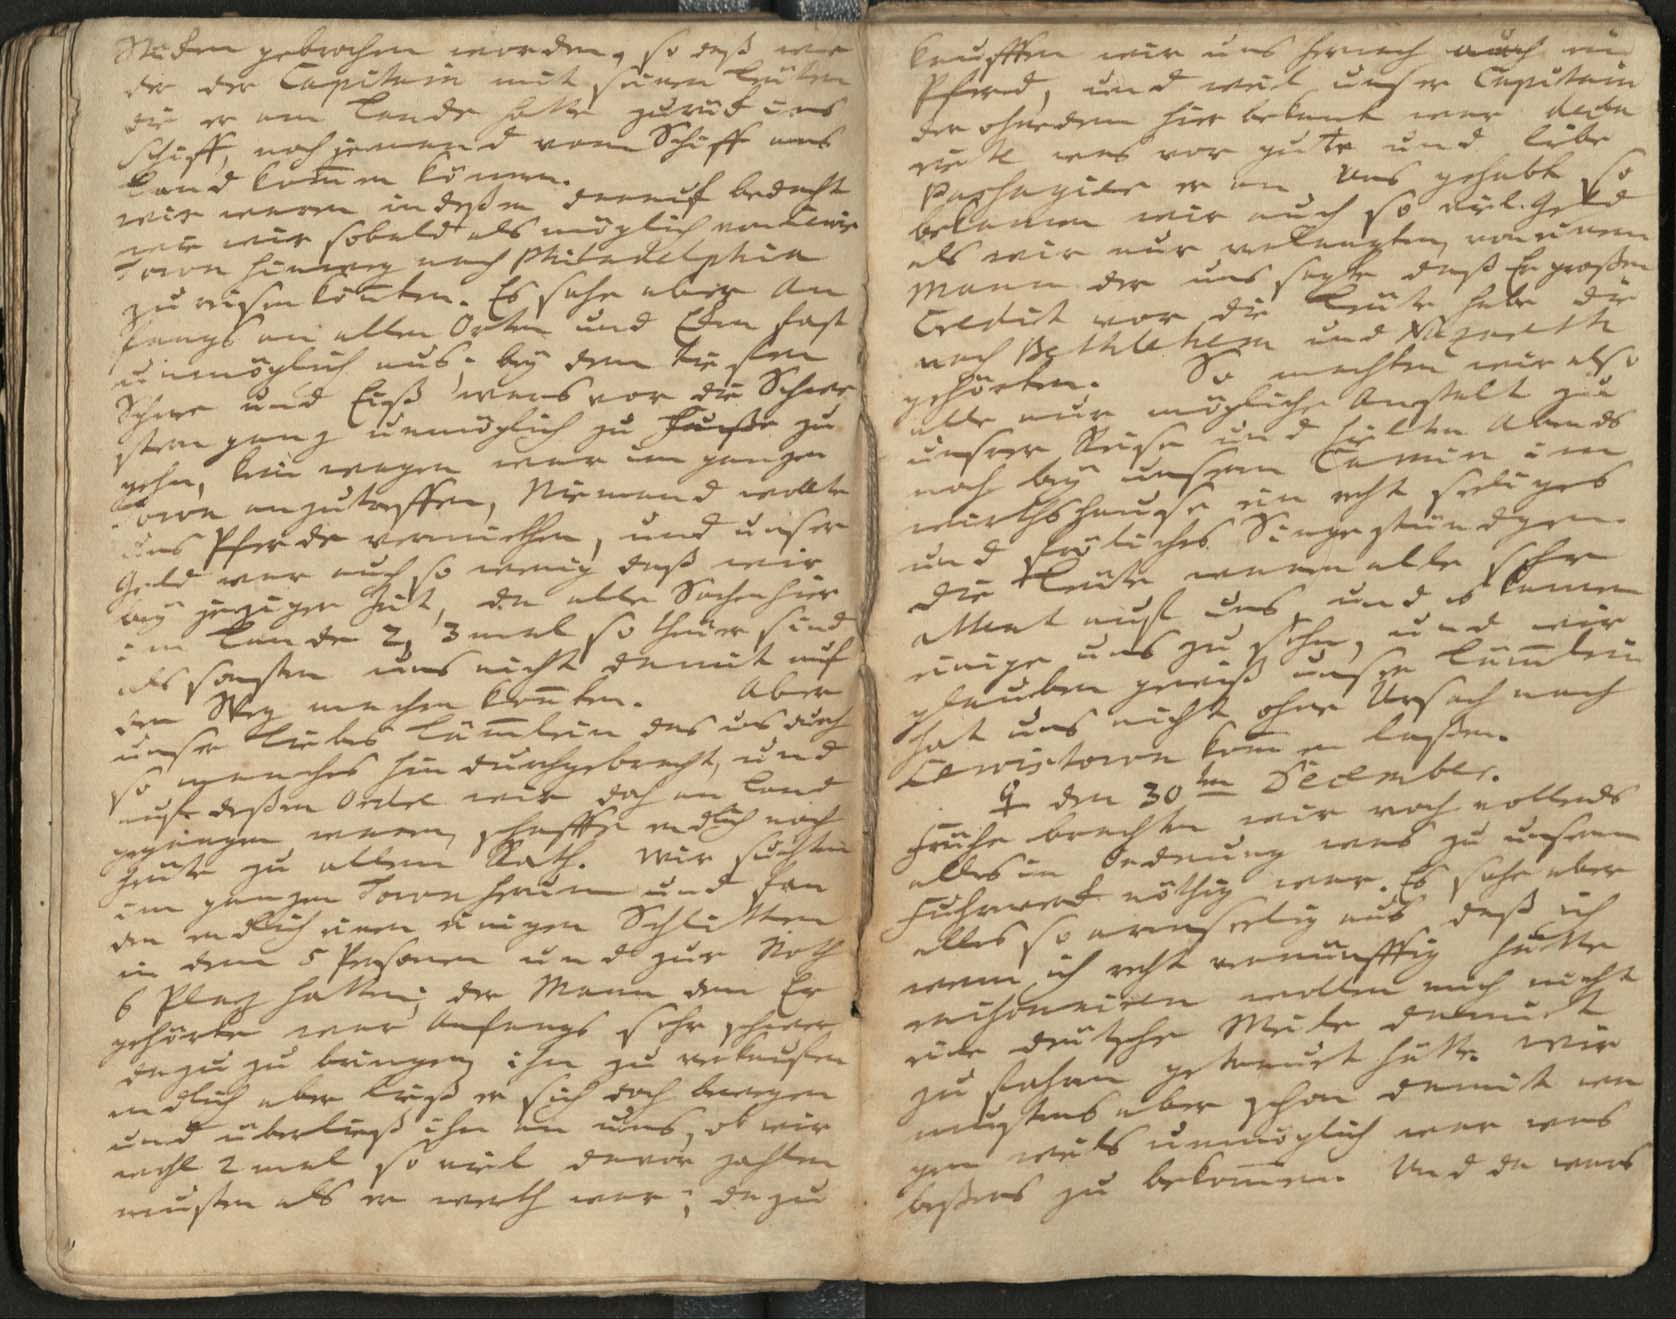 Stücken gebrochen worden, so daß we
der der Capitain mit seinen Leuten
die er am Lande hatte zurück ins
Schiff, noch jemand vom Schiff ans
Land kom̅en können.
Wir waren indeßen darauf bedacht
wie wir sobald als möglich von Lewis
Town hinweg nach Philadelphia
zu reisen kön̅ten. Es sahe aber An
fangs an allen Orten und Eden fast
unmöglich aus; bey dem tiefen
Schnee und Eiß wars vor die Schwe
stern ganz unmöglich zu Fuße zu
gehn, kein wagen war im ganzen
Town anzutreffen, Niemand wollte
uns Pferde vermiethen, und unser
Geld war auch so wenig daß wir
bey jeziger Zeit, da alle Sachen hier
im Lande 2, 3 mal so theuer sind
als sonsten uns nicht damit auf
den Weg machen kon̅ten. Aber
unser liebes Läm̅lein das uns durch
so manches hindurchgebracht, und
auf deßen Order wir doch an Land
gegangen waren, schaffte endlich noch
heute zu allem Rath. Wir suchten
im ganzen Town herum und fan
den endlich einen einigen Schlitten
in dem 5 Personen und zur Noth
6 Plaz hatten; der Mann dem Er
gehörte war Anfangs sehr schwer
dazu zu bringen ihn zu verkaufen
endlich aber ließ er sich doch bewegen
und überließ ihn an uns, ob wir
wohl 2 mal so viel davor zahlen
musten als er werth war; dazu
kaufften wir uns hernach auch ein
Pferd, und weil unser Capitain
der ohnedem hier bekant war
was vor gute und liebe
Passagiere er an Uns gehabt so
bekamen wir auch so viel Geld
als wir nur verlangten, von einem
Mann der uns sagte daß Er großen
Credit vor die Leute habe die
nach Bethlehem und Nazareth
gehörten. So machten wir also
alle nur mögliche Anstalt zu
unsrer Reise und hielten Abends
noch bey unserm Camin im
wirthshause ein recht seliges
und fröliches Singestündgen.
Die Leute waren alle sehr
Attent auf uns, und es kamen
einige uns zu sehn, und wir
glauben gewiß unser Läm̅lein
hat uns nicht ohne Ursach nach
Lewistown kom̅en laßen.
♀ den 30ten December.
Frühe brachten wir noch vollends
alles in Ordnung was zu unserm
Fuhrwerk nöthig war. Es sahe aber
alles so armseelig aus daß ich
wenn ich recht vernünfftig hätte
raisoniren wollen mich nicht
eine deutsche Meile damit
zu fahren getrauet hätte. Wir
mustens aber schon damit wa
gen weils unmöglich war was
beßers zu bekom̅en. Und da wars